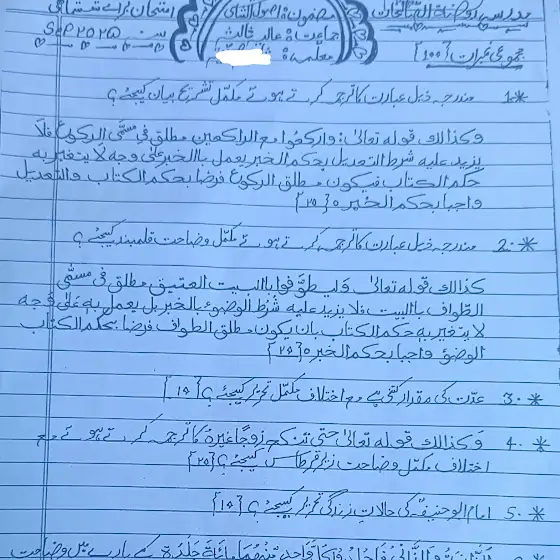 مدرسہ روضۃ البنات
مضمون: اصول الشاشی
امتحان برائے ششماہی
جماعت: عالیہ ثالثہ
سنہ SEP 2025
معلمہ:
مجموعی نمبرات [100]
*1 مندرجہ ذیل عبارت کا ترجمہ کرتے ہوئے مکمل تشریح بیان کیجئے؟
وکذالک قولہ تعالیٰ: وارکعوا مع الراکعین مطلق فی مسمّی الرکوع فلا
یزید علیہ شرط التعدیل بحکم الخبر یعمل باالخبر علی وجہ لا یتغیر بہ
حکم الکتاب فیکون مطلق الرکوع فرضا بحکم الکتاب والتعدیل
واجبا بحکم الخبر ہ [20]
*2. مندرجہ ذیل عبارت کا ترجمہ کرتے ہوئے مکمل وضاحت قلمبند کیجئے؟
کذالک قولہ تعالیٰ ولیطوّفوا باالبیت العتیق مطلق فی مسمّی
الطواف باالبیت فلا یزید علیہ شرط الوضوء بالخبر بل یعمل بہ علی وجہ
لا یتغیر بہ حکم الکتاب بان یکون مطلق الطواف فرضا بحکم الکتاب
الوضوء واجبا بحکم الخبر ہ [20]
*3. عدّت کی مقدار کتنی ہے مع اختلاف مکمل تحریر کیجئے؟ [10]
*4. وکذالک قولہ تعالیٰ حتی تنکح زوجا غیرہ کا ترجمہ کرتے ہوئے مع
اختلاف مکمل وضاحت زیر قرطاس کیجئے؟ [20]
*5. امام ابو حنیفہؒ کی حالات زندگی تحریر کیجئے؟ [10]
الزانی فاجلدوا کل واحد منھما مائۃ جلدۃ کے بارے میں وضاحت